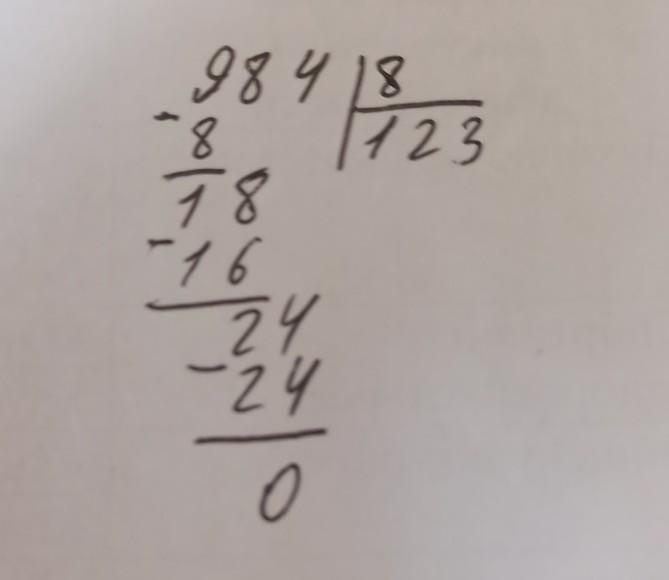 984 | 8
- 8 | 123
18
- 16
24
- 24
0